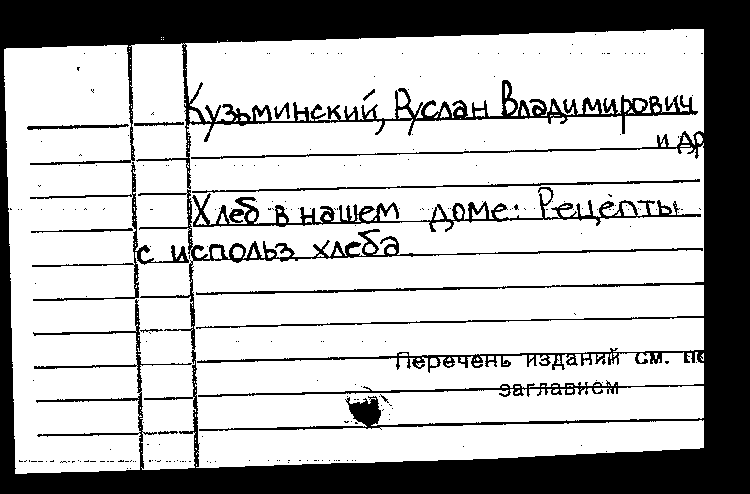 Кузьминский, Руслан Владимирович
и др
Хлеб в нашем доме: Рецепты
с использ. хлеба
Перечень изданий см. по
заглавием